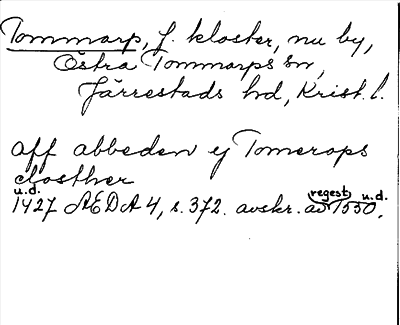 Tommarp, f. kloster, nu by,
Östra Tommarps sn,
Järrestads hd, Krist. l.
aff abbeden ij Tomerops
closther
u.d. regest u.d.
1427 AEDA 4, s. 372. avskr. av 1550.